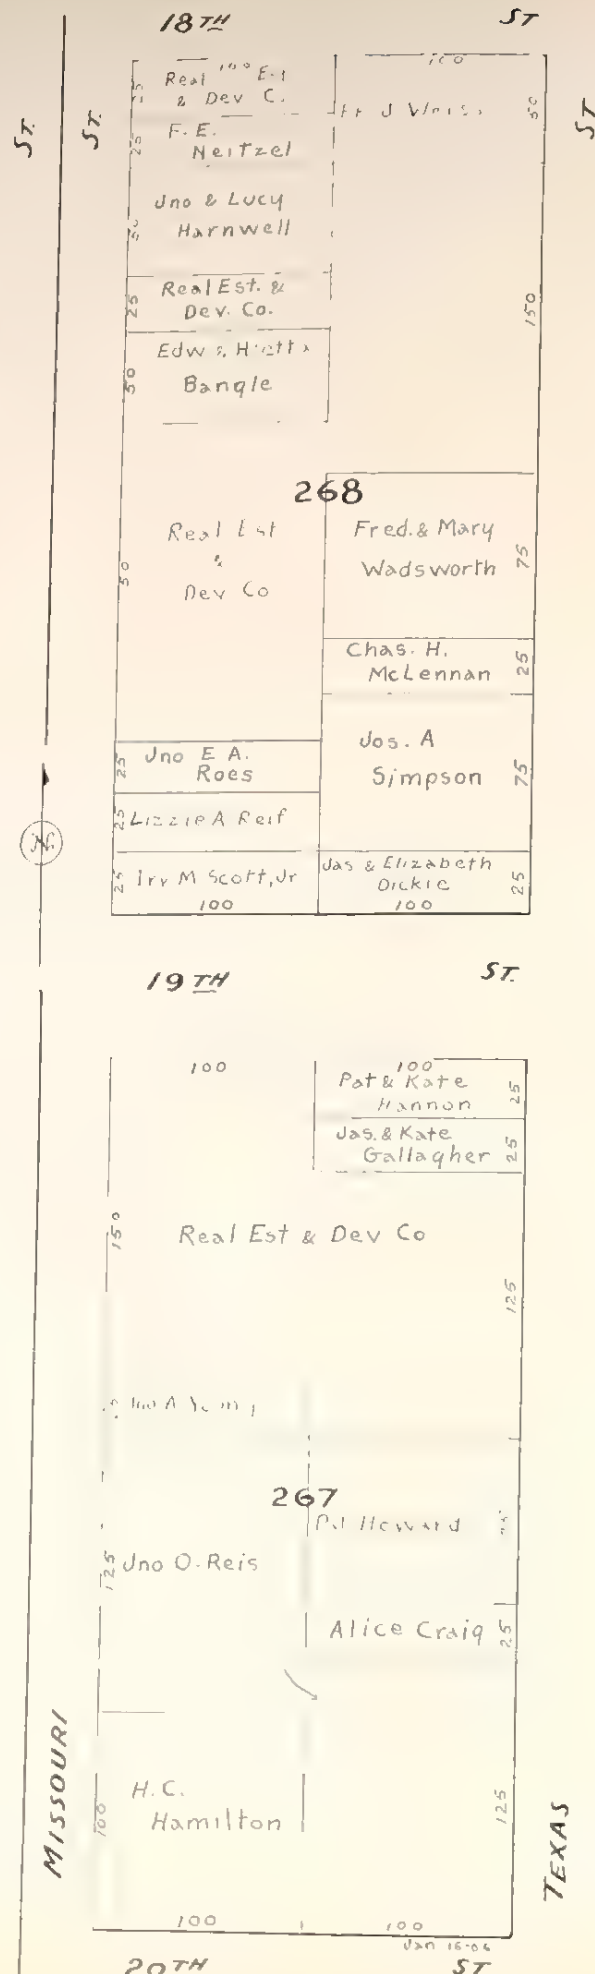 18TH ST
ST.
ST.
ST
100
Real E
& Dev C.
25
F. E.
Neitzel
25
Jno & Lucy
Harnwell
50
Real Est. &
Dev. Co.
25
Edw &
Bangle
50
100
50
150
268
Real Est
&
Dev Co
50
Fred. & Mary
Wadsworth
75
Chas. H.
McLennan
25
Jos. A
Simpson
75
Jno E A.
Roes
25
Lizzie A Reif
25
Irv M Scott, Jr
25
100
Jas & Elizabeth
Dickie
25
100
19TH ST.
100
100
Pat & Kate
Hannon
25
Jas. & Kate
Gallagher
25
150
Real Est & Dev Co
125
267
Howard
Jno O. Reis
125
Alice Craig
25
H.C.
Hamilton
100
125
100
100
Jan 16-06
MISSOURI
TEXAS
20TH ST